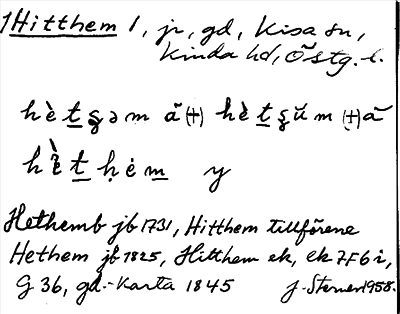 1 Hitthem 1, jr, gd, Kisa sn,
Kinda hd, Östg. l.
hètsəm ã (+) hètsŭm (+) ã
hèthėm y
Hethemb jb 1731, Hitthem tillförene
Hethem jb 1825, Hitthem ek, ek 7F6i,
G 36, gd.-Karta 1845 J. Sterner 1958.